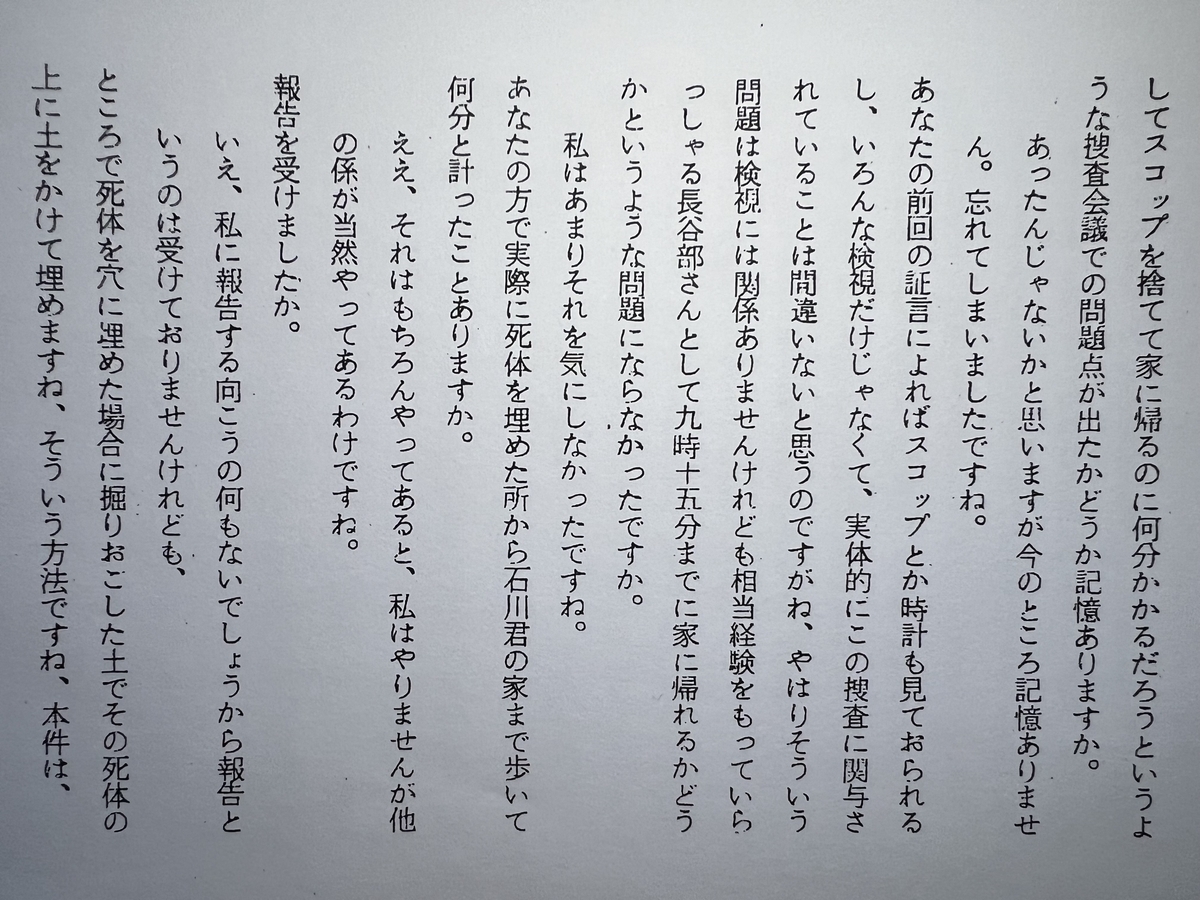 してスコップを捨てて家に帰るのに何分かかるだろうというよ
うな捜査会議での問題点が出たかどうか記憶ありますか。
あったんじゃないかと思いますが今のところ記憶ありませ
ん。忘れてしまいましたですね。
あなたの前回の証言によればスコップとか時計も見ておられる
し、いろんな検視だけじゃなくて、実体的にこの捜査に関与さ
れていることは間違いないと思うのですがね、やはりそういう
問題は検視には関係ありませんけれども相当経験をもっていら
っしゃる長谷部さんとして九時十五分までに家に帰れるかどう
かというような問題にならなかったですか。
私はあまりそれを気にしなかったですね。
あなたの方で実際に死体を埋めた所から石川君の家まで歩いて
何分と計ったことありますか。
ええ、それはもちろんやってあると、私はやりませんが他
の係が当然やってあるわけですね。
報告を受けましたか。
いえ、私に報告する向こうの何もないでしょうから報告と
いうのは受けておりませんけれども、
ところで死体を穴に埋めた場合に掘りおこした土でその死体の
上に土をかけて埋めますね、そういう方法ですね、本件は、